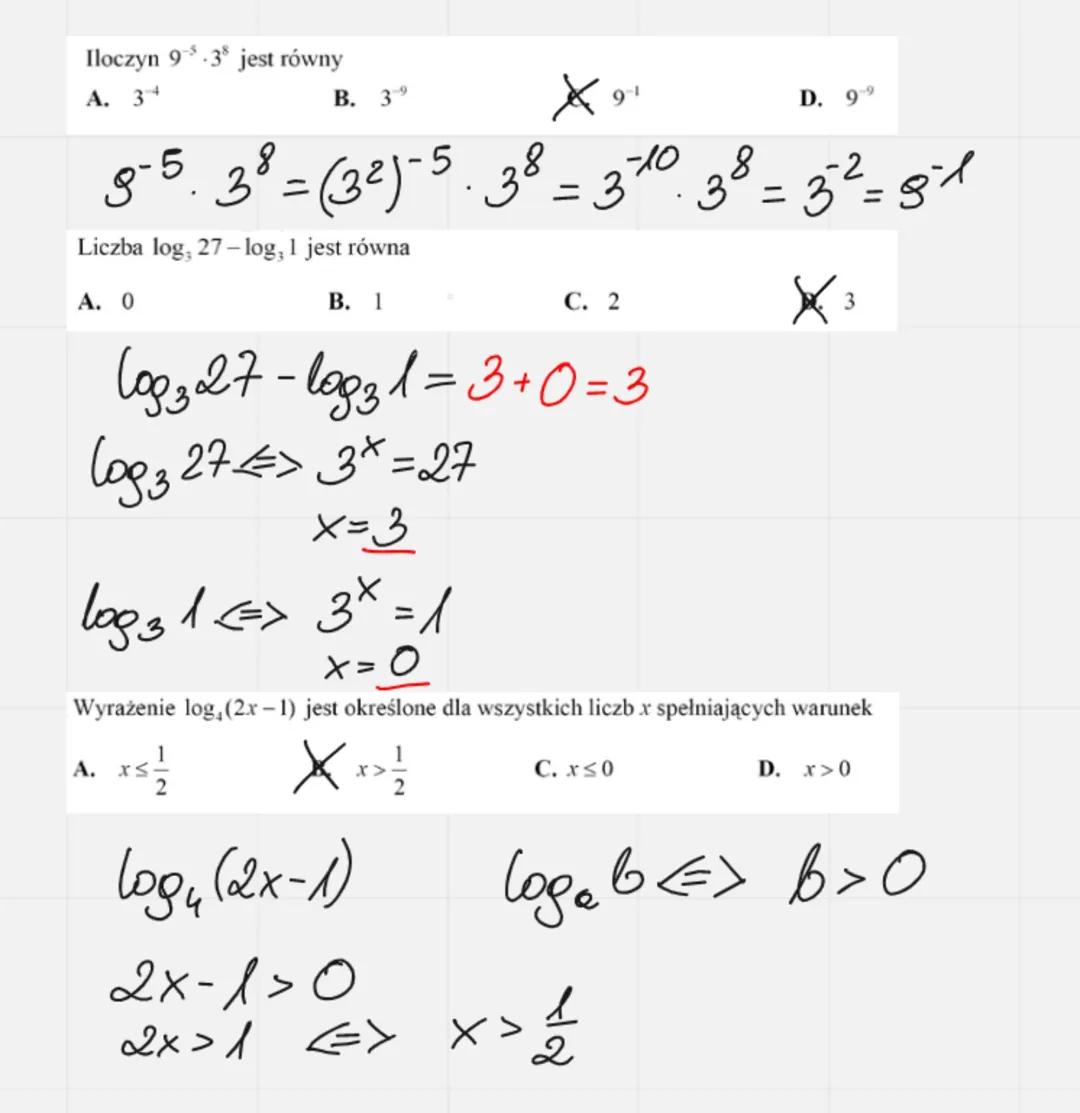 Iloczyn 9⁻⁵ · 3⁸ jest równy
A. 3⁻⁴ B. 3⁻⁹ C. 9⁻¹ D. 9⁻⁹
9⁻⁵ · 3⁸ = (3²)⁻⁵ · 3⁸ = 3⁻¹⁰ · 3⁸ = 3⁻² = 9⁻¹
Liczba log₃ 27 – log₃ 1 jest równa
A. 0 B. 1 C. 2 D. 3
log₃27 - log₃1 = 3+0=3
log₃27 <=> 3ˣ = 27
x=3
log₃1 <=> 3ˣ = 1
x=0
Wyrażenie log₄(2x – 1) jest określone dla wszystkich liczb x spełniających warunek
A. x ≤ 1/2 B. x > 1/2 C. x ≤ 0 D. x > 0
log₄(2x-1) logₐb <=> b>0
2x-1>0
2x>1 <=> x > 1/2